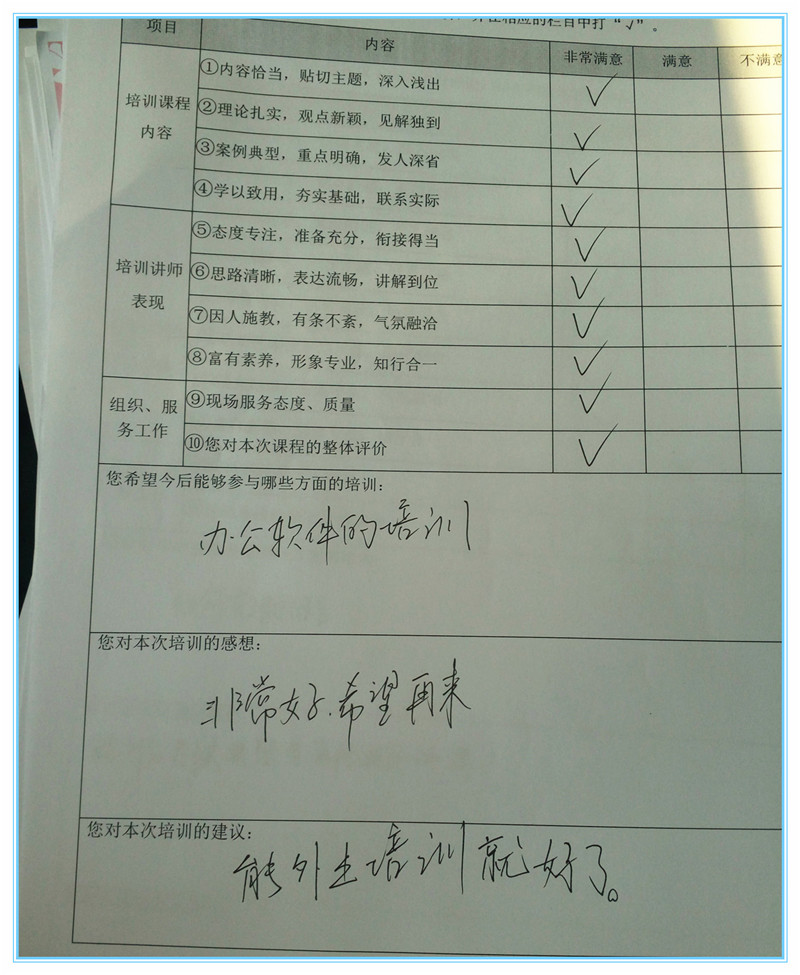 并在相应的栏目中打“√”。
项目 内容 非常满意 满意 不满意
培训课程内容
①内容恰当，贴切主题，深入浅出 √
②理论扎实，观点新颖，见解独到 √
③案例典型，重点明确，发人深省 √
④学以致用，夯实基础，联系实际 √
培训讲师表现
⑤态度专注，准备充分，衔接得当 √
⑥思路清晰，表达流畅，讲解到位 √
⑦因人施教，有条不紊，气氛融洽 √
⑧富有素养，形象专业，知行合一 √
组织、服务工作
⑨现场服务态度、质量 √
⑩您对本次课程的整体评价 √
您希望今后能够参与哪些方面的培训：
办公软件的培训
您对本次培训的感想：
非常好.希望再来
您对本次培训的建议：
能外出培训就好了。